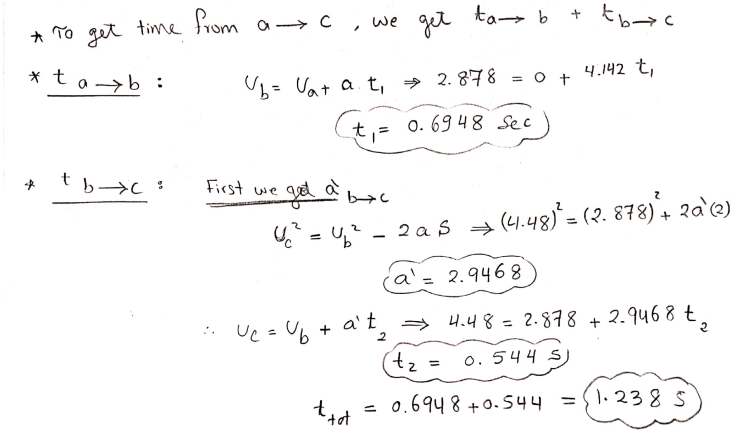 * To get time from a → c , we get ta→ b + t b→c
* t a→b : Ub = Ua + a. t1 ⇒ 2.878 = 0 + 4.142 t1
t1 = 0.6948 Sec
* t b→c : First we get a` b→c
Uc² = Ub² - 2 a S ⇒ (4.48)² = (2.878)² + 2a`(2)
a` = 2.9468
∴ Uc = Ub + a` t2 ⇒ 4.48 = 2.878 + 2.9468 t2
t2 = 0.544 S
t tot = 0.6948 + 0.544 = 1.238 S